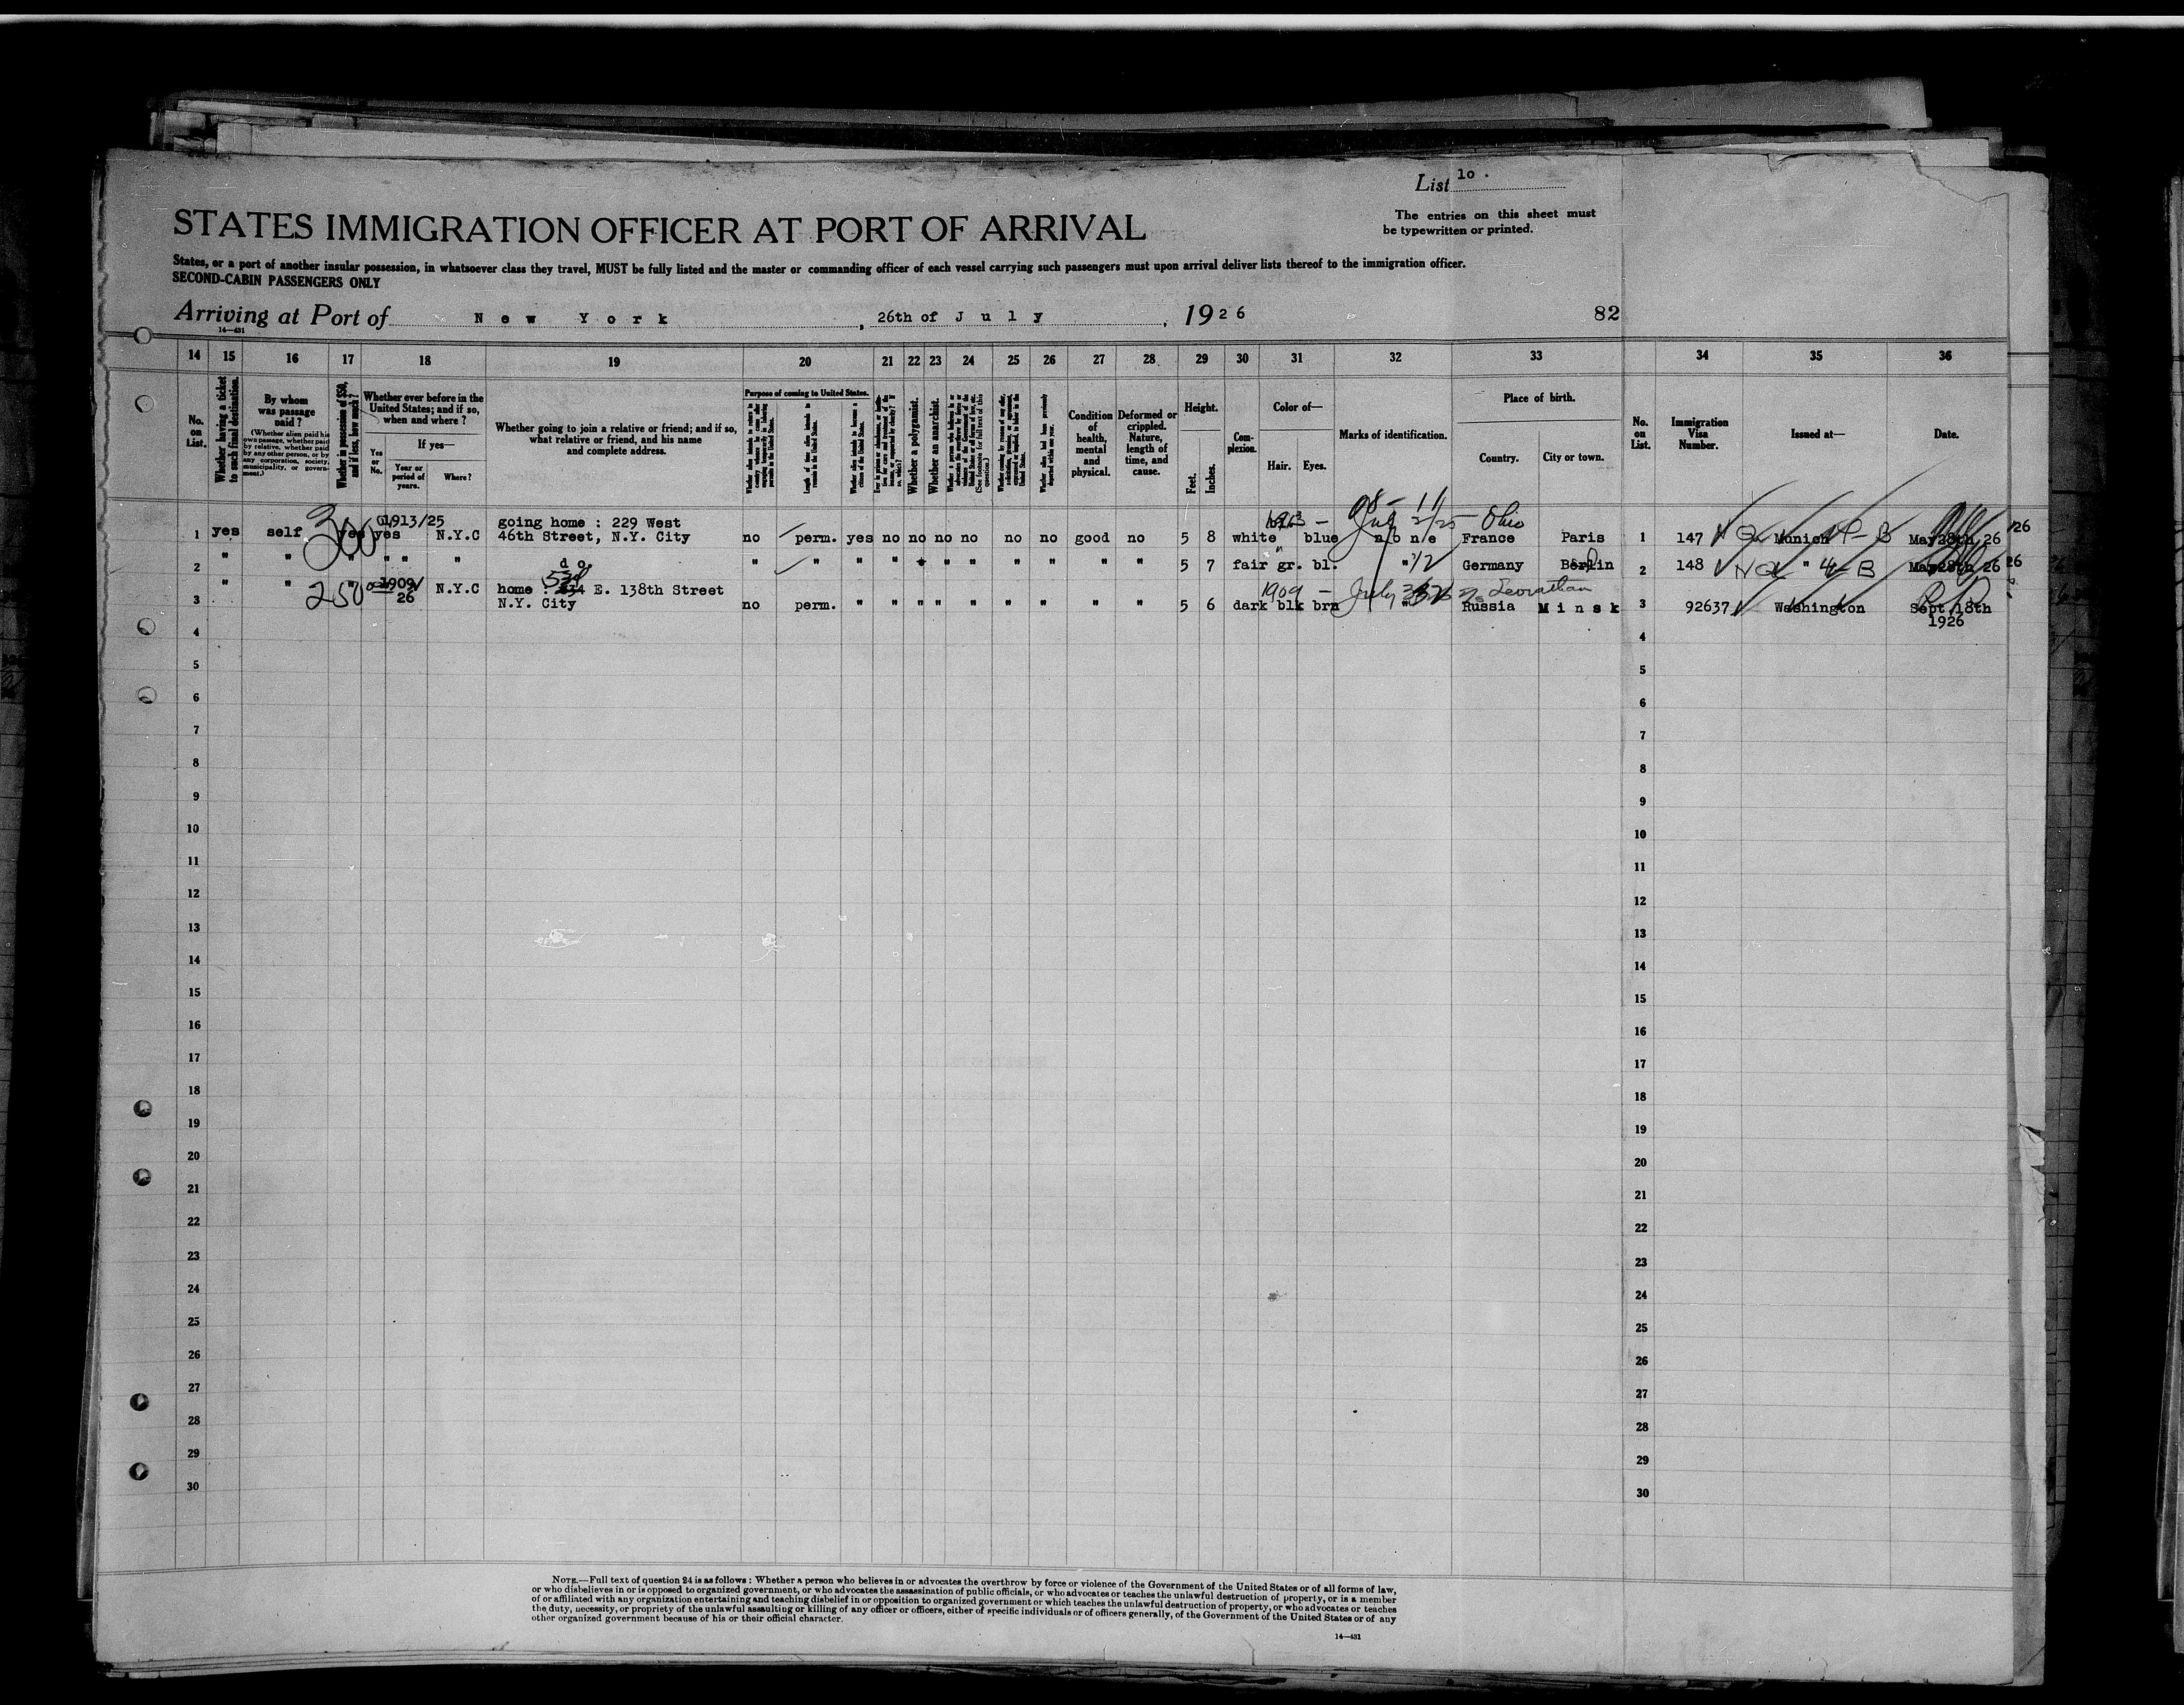 List 1o .
The entries on this sheet must
be typewritten or printed.
STATES IMMIGRATION OFFICER AT PORT OF ARRIVAL
States, or a port of another insular possession, in whatsoever class they travel, MUST be fully listed and the master or commanding officer of each vessel carrying such passengers must upon arrival deliver lists thereof to the immigration officer.
SECOND-CABIN PASSENGERS ONLY
Arriving at Port of New York, 26th of July, 1926
82
14—431
14 15 16 17 18 19 20 21 22 23 24 25 26 27 28 29 30 31 32 33 34 35 36
No. on List.
Whether having a ticket to such final destination.
By whom was passage paid?
(Whether alien paid his own passage, whether paid by relative, whether paid by any other person, or by any corporation, society, municipality, or government.)
Whether in possession of $50, and if less, how much?
Whether ever before in the United States; and if so, when and where?
Yes or No.
If yes—
Year or period of years.
Where?
Whether going to join a relative or friend; and if so, what relative or friend, and his name and complete address.
Purpose of coming to United States.
Length of time alien intends to remain in the United States.
Whether alien intends to become a citizen of the United States.
Whether a polygamist.
Whether an anarchist.
Condition of health, mental and physical.
Deformed or crippled. Nature, length of time, and cause.
Height.
Feet.
Inches.
Complexion.
Color of—
Hair.
Eyes.
Marks of identification.
Place of birth.
Country.
City or town.
No. on List.
Immigration Visa Number.
Issued at—
Date.
1913/25 going home : 229 West 1913 — Ohio
1 yes self 300 yes yes N.Y.C 46th Street, N.Y. City no perm. yes no no no no no no good no 5 8 white blue none France Paris 1 147 Munich May 28th 26
2 " " " " " " d o. " " " " " " " " " " " 5 7 fair gr. bl. " Germany Berlin 2 148 " 4-B May 28th 26
" " 250 " 1909/26 N.Y.C home : 534 E. 138th Street 1909 — July Leviathan
3 N.Y. City no perm. " " " " " " " " " 5 6 dark blk brn " Russia Minsk 3 92637 Washington Sept 18th
1926
4 4
5 5
6 6
7 7
8 8
9 9
10 10
11 11
12 12
13 13
14 14
15 15
16 16
17 17
18 18
19 19
20 20
21 21
22 22
23 23
24 24
25 25
26 26
27 27
28 28
29 29
30 30
NOTE.—Full text of question 24 is as follows: Whether a person who believes in or advocates the overthrow by force or violence of the Government of the United States or of all forms of law,
or who disbelieves in or is opposed to organized government, or who advocates the assassination of public officials, or who advocates or teaches the unlawful destruction of property, or is a member
of or affiliated with any organization entertaining and teaching disbelief in or opposition to organized government or which teaches the unlawful destruction of property, or who advocates or teaches
the duty, necessity, or propriety of the unlawful assaulting or killing of any officer or officers, either of specific individuals or of officers generally, of the Government of the United States or of any
other organized government because of his or their official character.
14—431